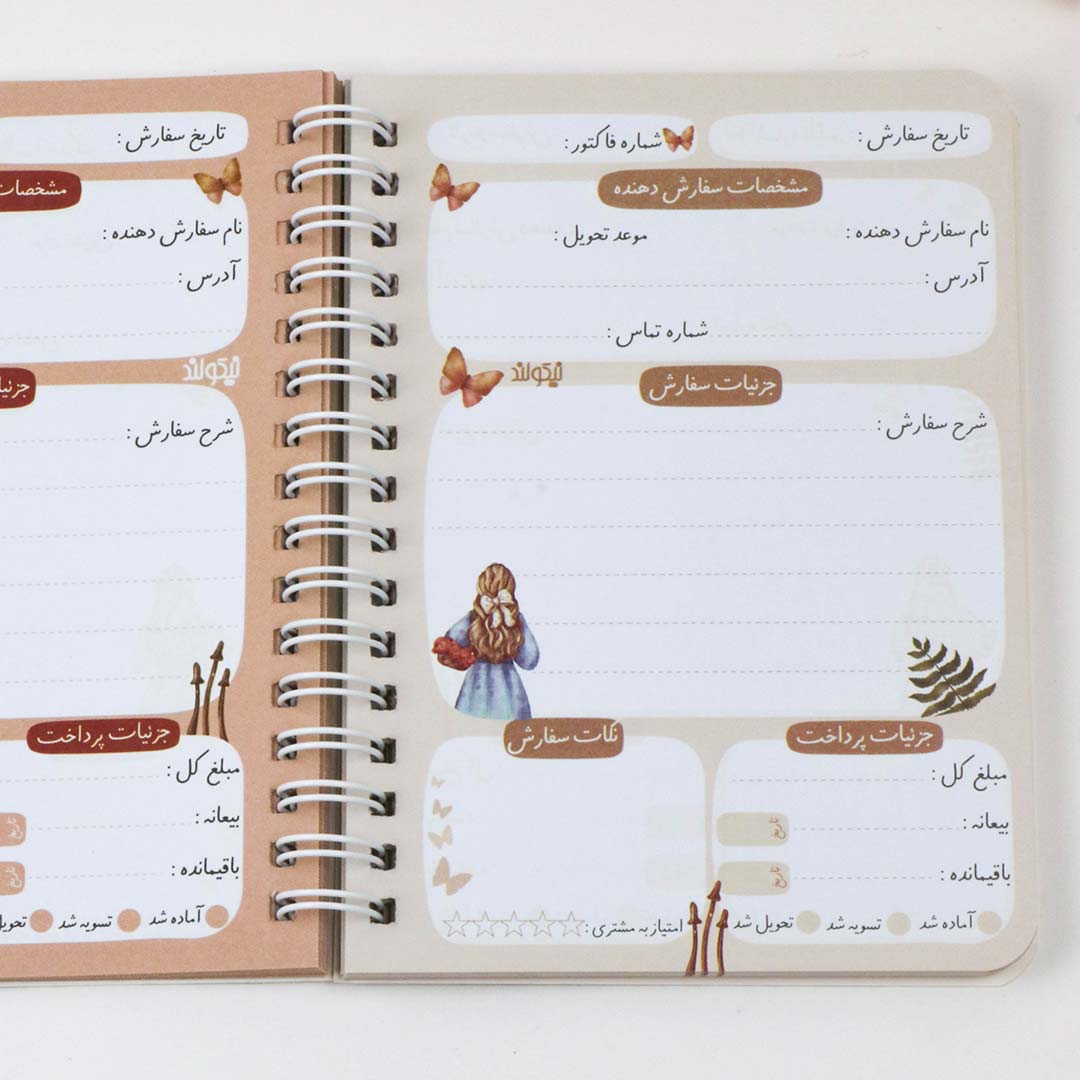 تاریخ سفارش :
شماره فاکتور :
مشخصات سفارش دهنده
نام سفارش دهنده :
موعد تحویل :
آدرس :
شماره تماس :
نیکولند
جزئیات سفارش
شرح سفارش :
جزئیات پرداخت
مبلغ کل :
بیعانه :
تاریخ
باقیمانده :
تاریخ
آماده شد
تسویه شد
تحویل شد
نکات سفارش
امتیاز به مشتری :
تاریخ سفارش :
مشخصات
نام سفارش دهنده :
آدرس :
نیکولند
شرح سفارش :
جزئیات پرداخت
مبلغ کل :
بیعانه :
تاریخ
باقیمانده :
تاریخ
آماده شد
تسویه شد
تحویل